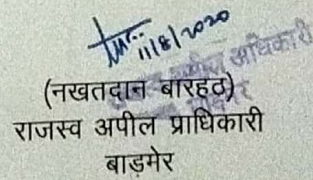 11/8/2020
(नखतदान बारहठ)
राजस्व अपील प्राधिकारी
बाड़मेर